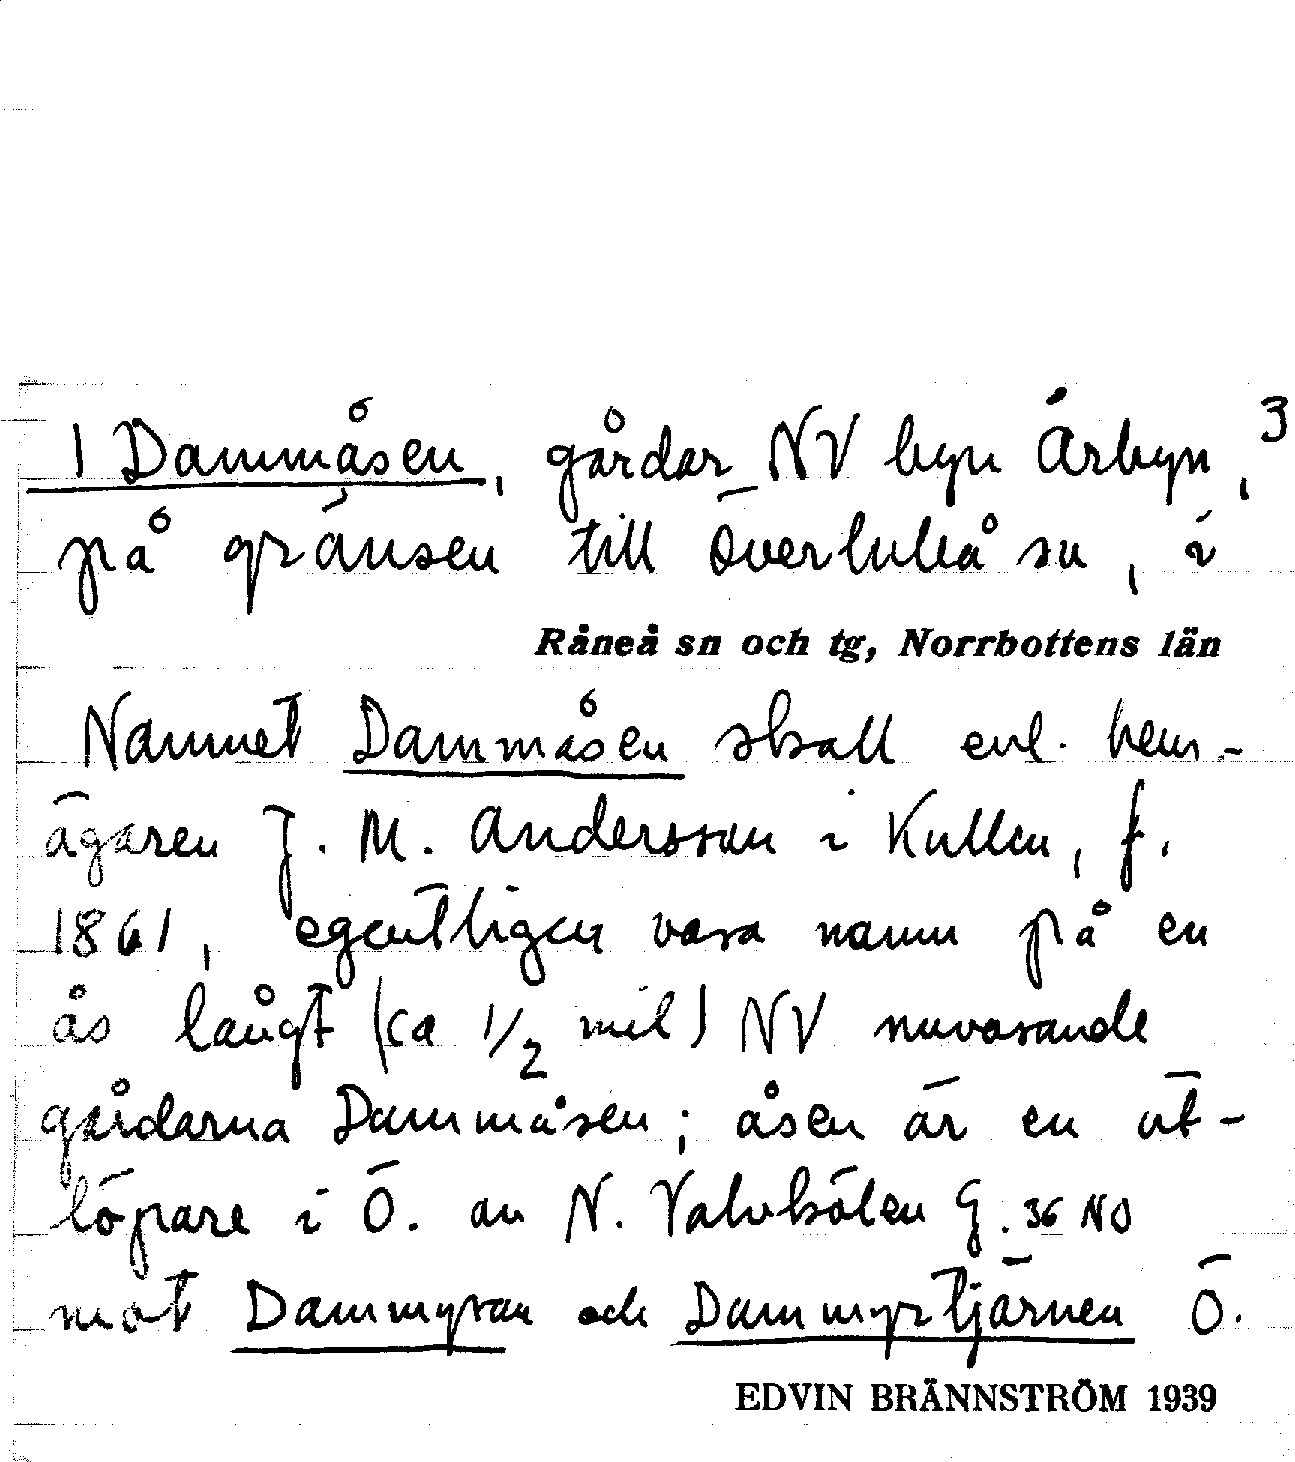 1 Dammåsen, gårdar NV byn Årbyn, 3
på gränsen till Överluleå sn, i
Råneå sn och tg, Norrbottens län
Namnet Dammåsen skall enl. hem-
ägaren J. M. Andersson i Kullen, f.
1861, egentligen vara namn på en
ås långt (ca 1/2 mil) NV nuvarande
gårdarna Dammåsen; åsen är en ut-
löpare i Ö. av N. Valvkölen G. 36 NO
mot Dammyran och Dammyrtjärnen Ö.
EDVIN BRÄNNSTRÖM 1939